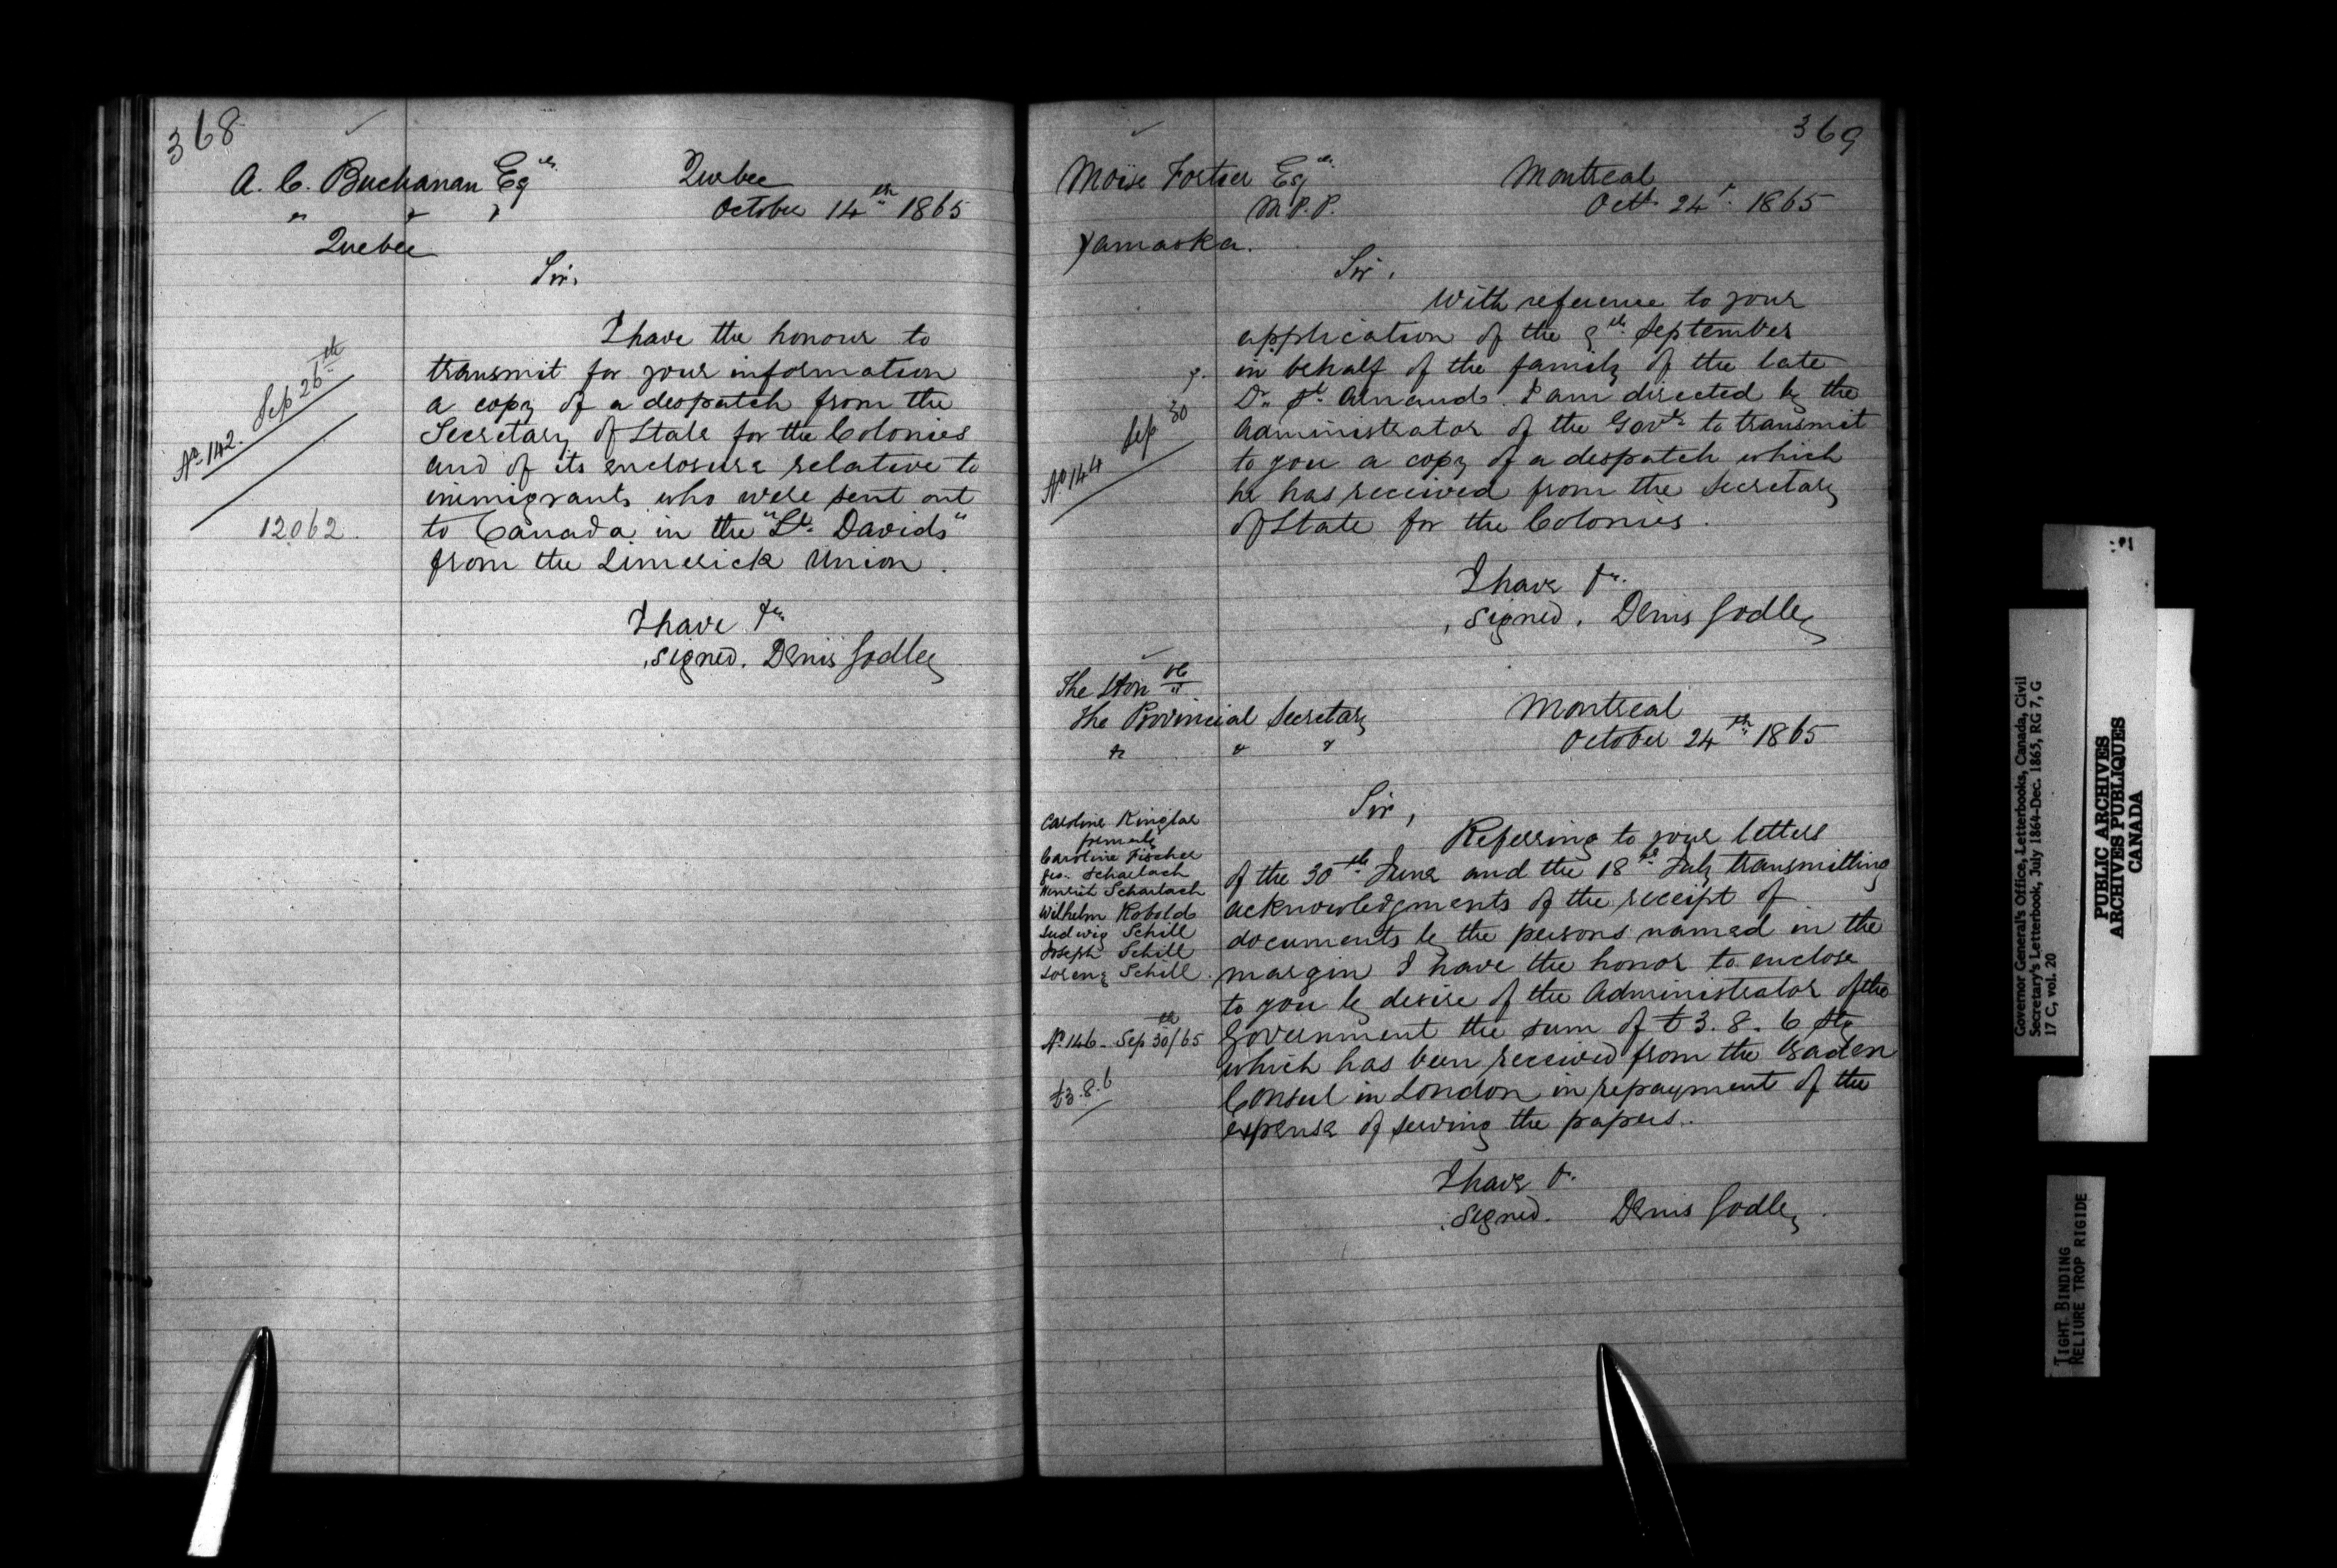 368
A. C. Buchanan Esqre
" " "
Quebec
Quebec
October 14th 1865
Sir,
No. 142. Sep 26th
12062.
I have the honour to
transmit for your information
a copy of a despatch from the
Secretary of State for the Colonies
and of its enclosure relative to
immigrants who were sent out
to Canada in the "St. Davids"
from the Limerick Union.
I have &c
signed. Denis Godley
369
Moise Fortier Esqre
M.P.P.
Yamaska.
Montreal
Oct. 24th. 1865
Sir,
No 144 Sep 30
With reference to your
application of the 9th September
in behalf of the family of the late
Dr. St. Arnaud. I am directed by the
Administrator of the Govt. to transmit
to you a copy of a despatch which
he has received from the Secretary
of State for the Colonies.
I have &c.
signed. Denis Godley
The Honble
The Provincial Secretary
& & &
Montreal
October 24th 1865
Sir,
Caroline Ringlar
formerly
Caroline Fischer
Geo. Scharlach
Henriet Scharlach
Wilhelm Kobold
Ludwig Schill
Joseph Schill
Lorenz Schill.
No. 146 - Sep 30th/65
£3.8.6
Referring to your letters
of the 30th June and the 18th July transmitting
acknowledgments of the receipt of
documents by the persons named in the
margin I have the honor to enclose
to you by desire of the Administrator of the
Government the sum of £3. 8. 6 Stg
which has been received from the Baden
Consul in London in repayment of the
expense of serving the papers.
I have &.
signed. Denis Godley.
Governor General's Office, Letterbooks, Canada, Civil
Secretary's Letterbook, July 1864-Dec. 1865, RG 7, G
17 C, vol. 20
PUBLIC ARCHIVES
ARCHIVES PUBLIQUES
CANADA
TIGHT BINDING
RELIURE TROP RIGIDE